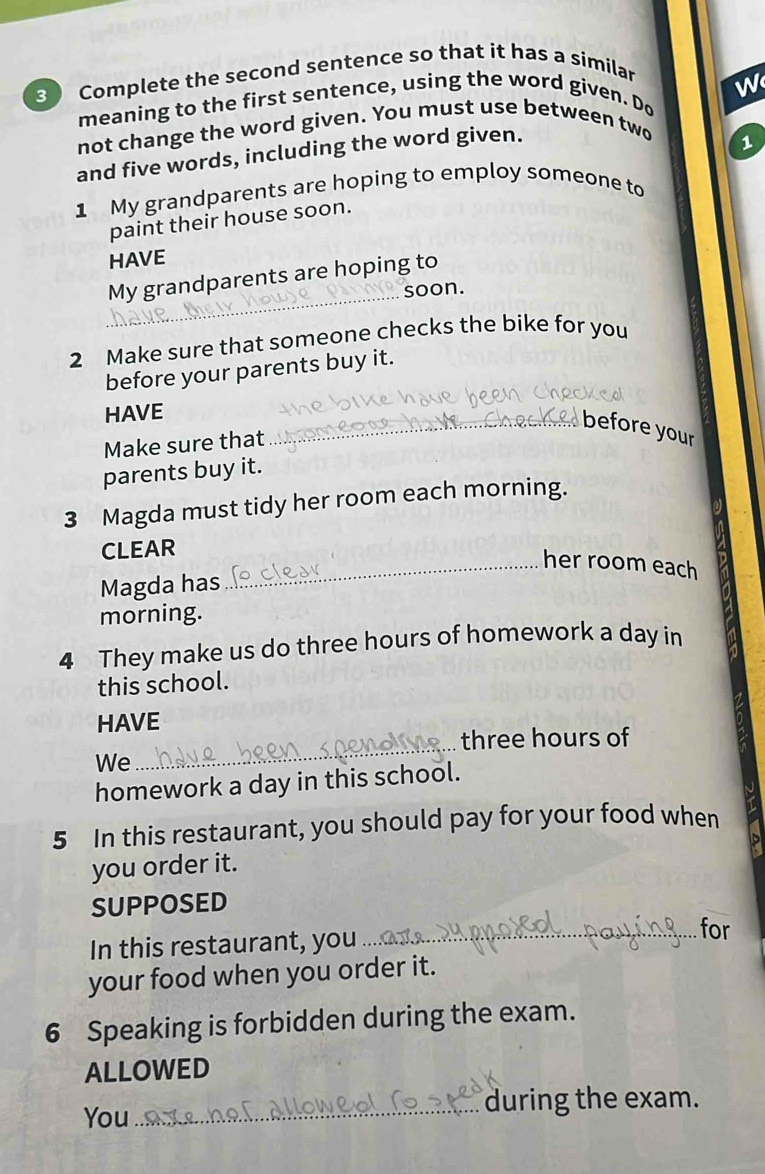 3 Complete the second sentence so that it has a similar
meaning to the first sentence, using the word given. Do
not change the word given. You must use between two
and five words, including the word given.
1 My grandparents are hoping to employ someone to
paint their house soon.
HAVE
My grandparents are hoping to
have their house painted soon.
2 Make sure that someone checks the bike for you
before your parents buy it.
HAVE
the bike have been checked
Make sure that someone have checked before your
parents buy it.
3 Magda must tidy her room each morning.
CLEAR
Magda has to clear her room each
morning.
4 They make us do three hours of homework a day in
this school.
HAVE
We have been spending three hours of
homework a day in this school.
5 In this restaurant, you should pay for your food when
you order it.
SUPPOSED
In this restaurant, you are supposed paying for
your food when you order it.
6 Speaking is forbidden during the exam.
ALLOWED
You are not allowed to speak during the exam.
W
1
MADE IN GERMANY
STAEDTLER Noris 2H